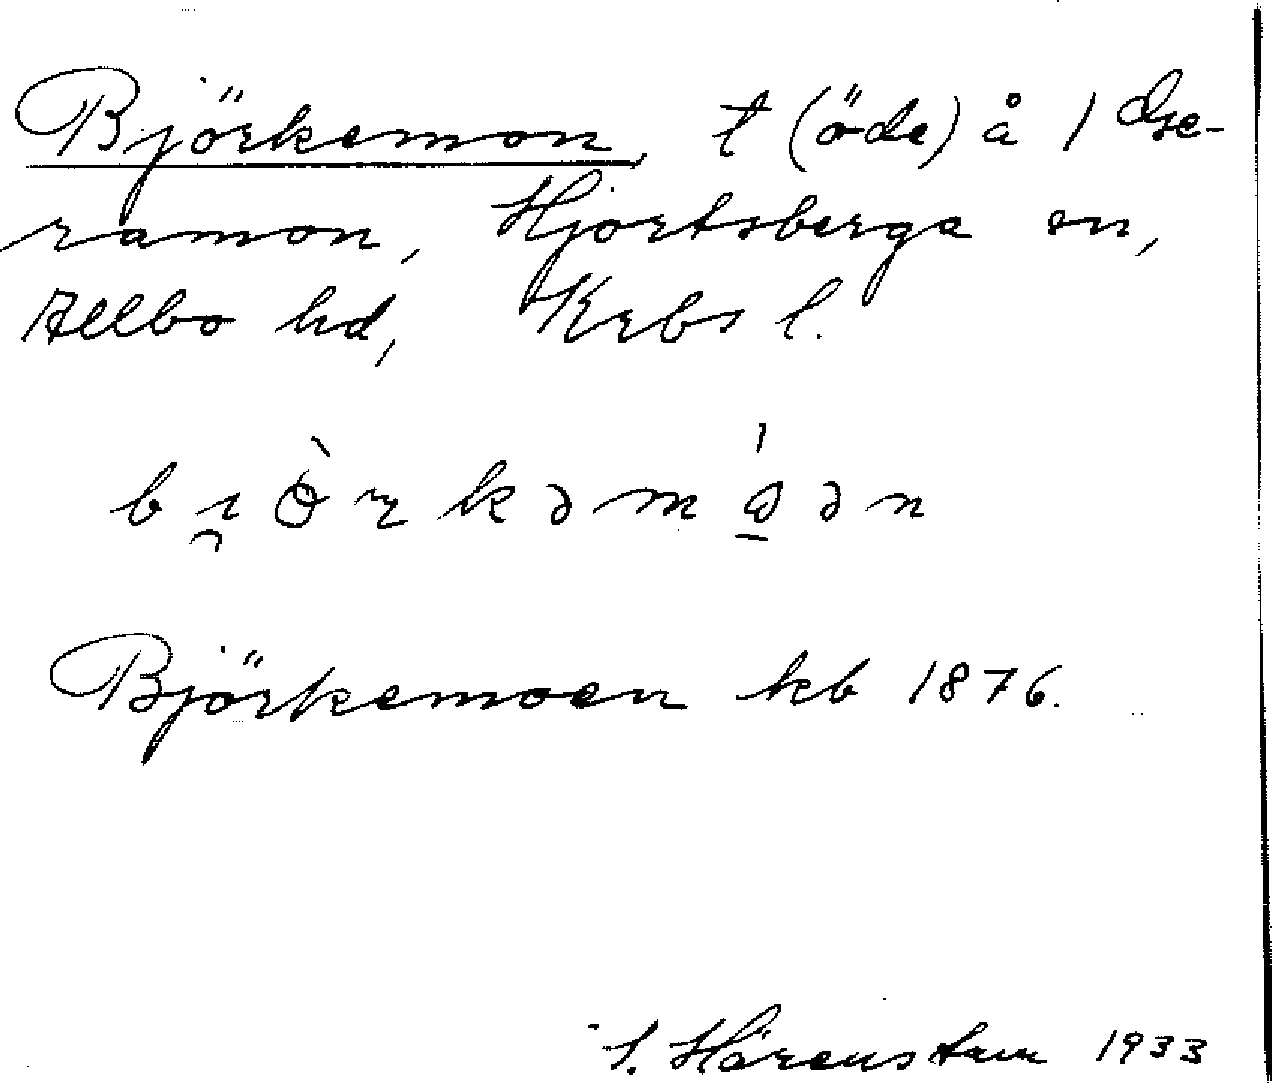 Björkemon, t (öde) å 1 Ose-
ramon, Hjortsberga sn,
Allbo hd, Krbs l.
Björkemoen kb 1876.
S. Hörenstam 1933